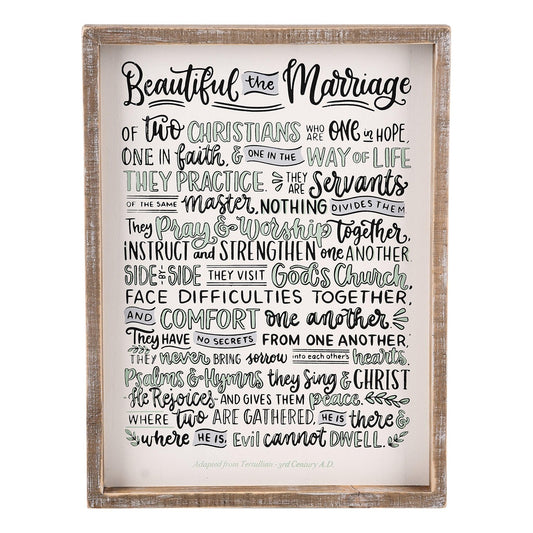 Beautiful the Marriage
OF two CHRISTIANS WHO ARE ONE in HOPE,
ONE IN faith, & ONE IN THE WAY OF LIFE
THEY PRACTICE. THEY ARE Servants
OF THE SAME Master, NOTHING DIVIDES THEM
They Pray & Worship together,
INSTRUCT and STRENGTHEN ONE ANOTHER.
SIDE-BY-SIDE THEY VISIT God's Church,
FACE DIFFICULTIES TOGETHER,
AND COMFORT one another.
THEY HAVE NO SECRETS FROM ONE ANOTHER,
THEY never BRING sorrow into each other's hearts.
Psalms & Hymns they Sing & CHRIST
He Rejoices AND GIVES THEM peace.
WHERE two ARE GATHERED, HE IS there &
where HE IS, Evil cannot DWELL.
Adapted from Tertullian - 3rd Century A.D.